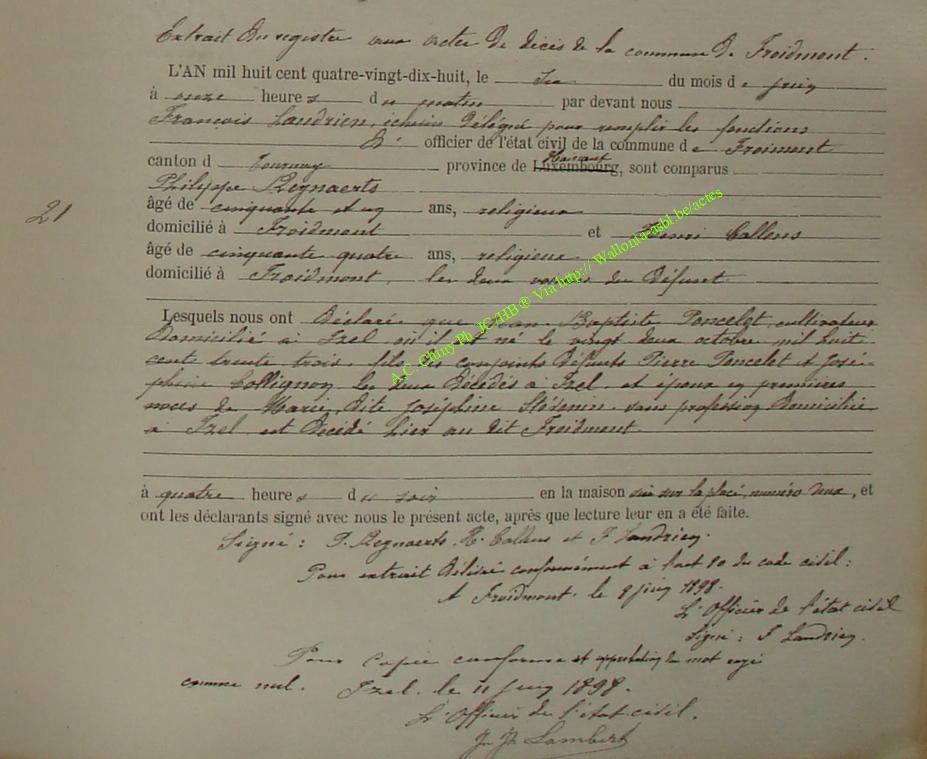 Extrait du registre aux actes de décès de la commune de Froidmont.
L'AN mil huit cent quatre-vingt-dix-huit, le six du mois de juin
à onze heures du matin par devant nous
François Landrien, échevin délégué pour remplir les fonctions
d' officier de l'état civil de la commune de Froimont
canton d Tournay province de Luxembourg, sont comparus
Hainaut
Philippe Reynaerts
21
âgé de cinquante et un ans, religieux
domicilié à Froidmont et Henri Callens
âgé de cinquante quatre ans, religieux
domicilié à Froidmont, les deux voisins du défunt
Lesquels nous ont déclaré que Jean Baptiste Poncelet, cultivateur
domicilié à Izel où il est né le vingt deux octobre mil huit
cent trente trois, fils des conjoints défunts Pierre Poncelet et José-
phine Collignon, les deux décédés à Izel, et époux en premières
noces de Marie, dite Joséphine sans profession domiciliée
à Izel est décédé hier au dit Froidmont.
à quatre heures du soir en la maison sise sur la place, numéro deux, et
ont les déclarants signé avec nous le présent acte, après que lecture leur en a été faite.
Signé : P. Reynaerts, H. Callens et F Landrien.
Pour extrait délivré conformément à l'art 80 du code civil :
A Froidmont, le 8 juin 1898.
L'Officier de l'état civil
Signé : F Landrien.
Pour copie conforme et approbation du mot rayé
comme nul. Izel, le 11 juin 1898.
L'Officier de l'état civil.
Lambert
A.C. Chiny Ph. JC/HB ® Via http:// Wallonia-asbl.be/actes